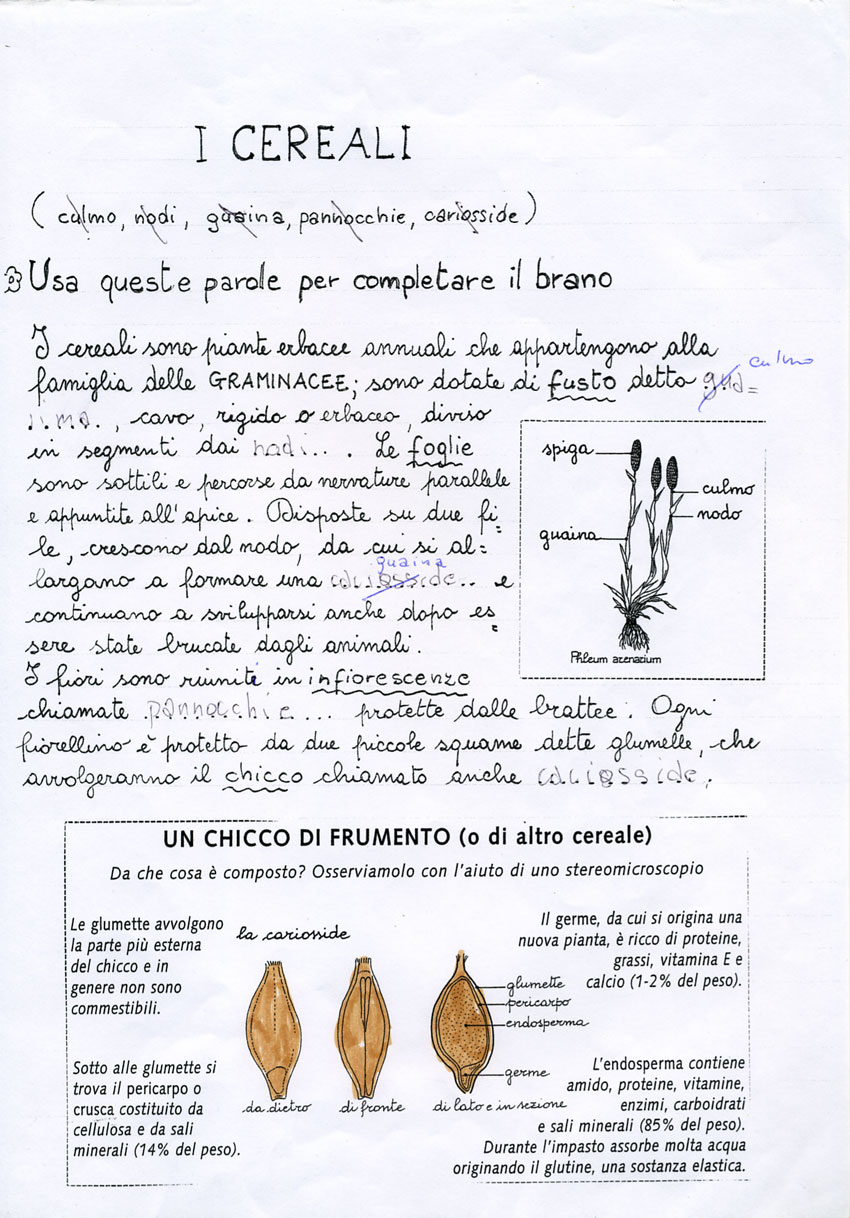 I CEREALI
( culmo, nodi, guaina, pannocchie, cariosside )
Usa queste parole per completare il brano
I cereali sono piante erbacee annuali che appartengono alla
culmo
famiglia delle GRAMINACEE; sono dotate di fusto detto gua=
, cavo, rigido o erbaceo, diviso
in segmenti dai nodi... . Le foglie
sono sottili e percorse da nervature parallele
e appuntite all'apice. Disposte su due fi-
le, crescono dal nodo, da cui si al=
guaina
largano a formare una cariosside.. e
continuano a svilupparsi anche dopo es
sere state brucate dagli animali.
I fiori sono riuniti in infiorescenze
chiamate pannochie... protette dalle brattee. Ogni
fiorellino è protetto da due piccole squame dette glumelle, che
avvolgeranno il chicco chiamato anche cariosside.
spiga
culmo
nodo
guaina
Phleum arenarium
UN CHICCO DI FRUMENTO (o di altro cereale)
Da che cosa è composto? Osserviamolo con l'aiuto di uno stereomicroscopio
Le glumette avvolgono
la parte più esterna
del chicco e in
genere non sono
commestibili.
la cariosside
Il germe, da cui si origina una
nuova pianta, è ricco di proteine,
grassi, vitamina E e
calcio (1-2% del peso).
glumette
pericarpo
endosperma
germe
Sotto alle glumette si
trova il pericarpo o
crusca costituito da
cellulosa e da sali
minerali (14% del peso).
da dietro
di fronte
di lato e in sezione
L'endosperma contiene
amido, proteine, vitamine,
enzimi, carboidrati
e sali minerali (85% del peso).
Durante l'impasto assorbe molta acqua
originando il glutine, una sostanza elastica.